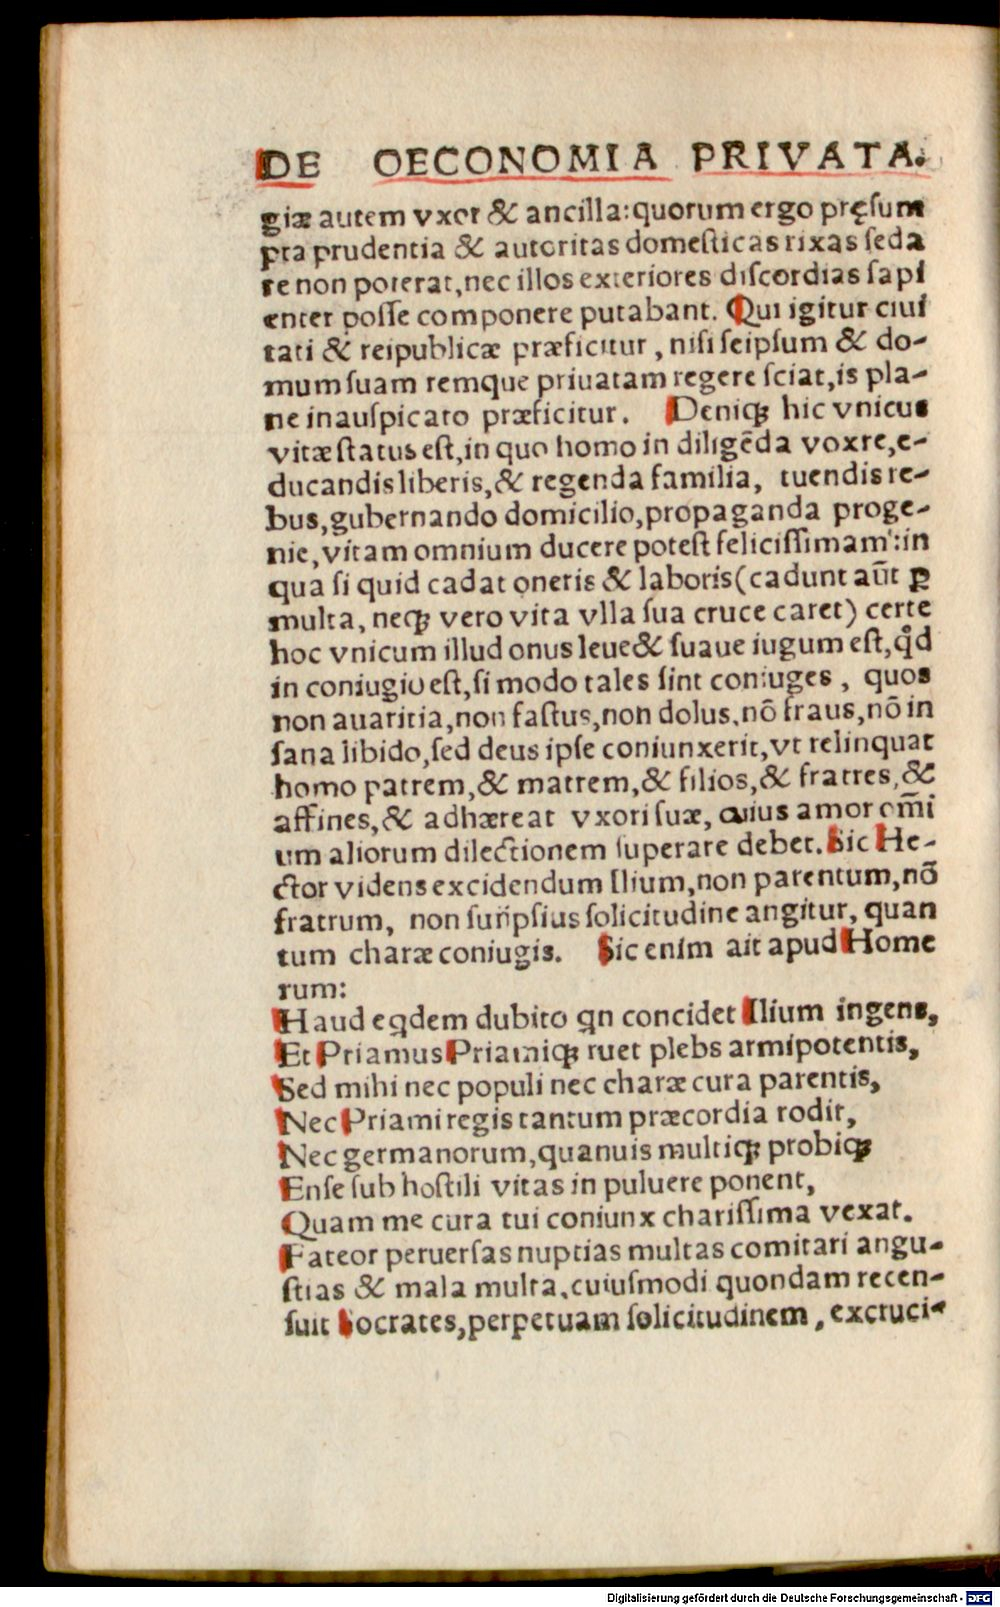 DE OECONOMIA PRIVATA.
giæ autem vxor & ancilla:quorum ergo pręsum
pta prudentia & autoritas domesticas rixas seda
re non poterat,nec illos exteriores discordias sapi
enter posse componere putabant. Qui igitur ciui
tati & reipublicæ præficitur, nisi seipsum & do-
mum suam remque priuatam regere sciat,is pla-
ne inauspicato præficitur. Deniqꝫ hic vnicus
vitæ status est,in quo homo in diligẽda voxre,e-
ducandis liberis,& regenda familia, tuendis re-
bus,gubernando domicilio,propaganda proge-
nie,vitam omnium ducere potest felicissimam:in
qua si quid cadat oneris & laboris(cadunt aũt ꝑ
multa, neqꝫ vero vita vlla sua cruce caret) certe
hoc vnicum illud onus leue& suaue iugum est,qͦd
in coniugio est,si modo tales sint coniuges, quos
non auaritia,non fastus,non dolus,nõ fraus,nõ in
sana libido,sed deus ipse coniunxerit,vt relinquat
homo patrem,& matrem,& filios,& fratres,&
affines,& adhæreat vxori suæ, cuius amor om̃i
um aliorum dilectionem superare debet. Sic He-
ctor videns excidendum Ilium,non parentum,nõ
fratrum, non suiipsius solicitudine angitur, quan
tum charæ coniugis. Sic enim ait apud Home
rum:
Haud eqdem dubito qn concidet Ilium ingens,
Et Priamus Priamiqꝫ ruet plebs armipotentis,
Sed mihi nec populi nec charæ cura parentis,
Nec Priami regis tantum præcordia rodit,
Nec germanorum,quanuis multiqꝫ probiqꝫ
Ense sub hostili vitas in puluere ponent,
Quam me cura tui coniunx charissima vexat.
Fateor peruersas nuptias multas comitari angu-
stias & mala multa,cuiusmodi quondam recen-
suit Socrates,perpetuam solicitudinem, exctuci-
Digitalisierung gefördert durch die Deutsche Forschungsgemeinschaft - DFG